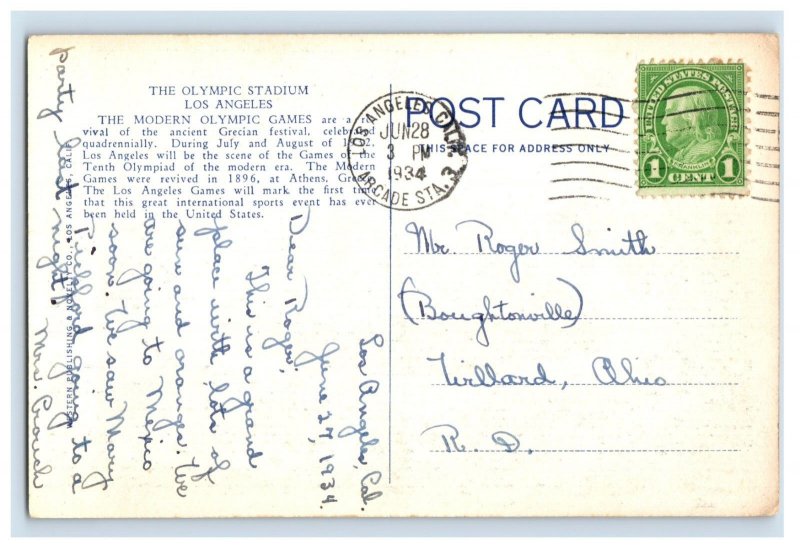 THE OLYMPIC STADIUM
LOS ANGELES
THE MODERN OLYMPIC GAMES are a re-
vival of the ancient Grecian festival, celebrated
quadrennially. During July and August of 1932,
Los Angeles will be the scene of the Games of the
Tenth Olympiad of the modern era. The Modern
Games were revived in 1896, at Athens, Greece.
The Los Angeles Games will mark the first time
that this great international sports event has ever
been held in the United States.
WESTERN PUBLISHING & NOVELTY CO., LOS ANGELES, CALIF.
POST CARD
THIS SPACE FOR ADDRESS ONLY
LOS ANGELES, CALIF.
JUN 28
3 PM
1934
ARCADE STA. 3
UNITED STATES POSTAGE
FRANKLIN
1 CENT 1
Mr. Roger Smith
(Boughtonville)
Willard, Ohio
R. D.
Los Angeles, Cal.
June 27, 1934.
Dear Roger,
This is a grand
place with lots of
sun and oranges. We
are going to Mexico
soon. We saw Mary
Pickford going to a
party last night.
Mrs. Crouch